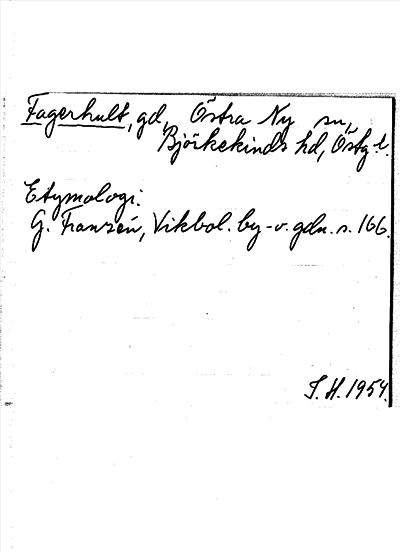 Fagerhult, gd, Östra Ny sn,
Björkekinds hd, Östg l.
Etymologi.
G. Franzén, Vikbol. by- o. gdn. s. 166.
S. H. 1954.